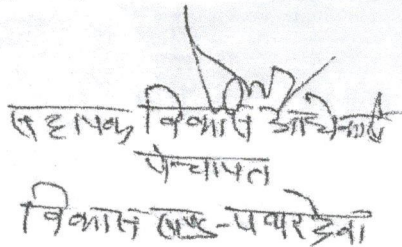 सहायक विकास अधिकारी
पंचायत
विकास खण्ड-पथरदेवा